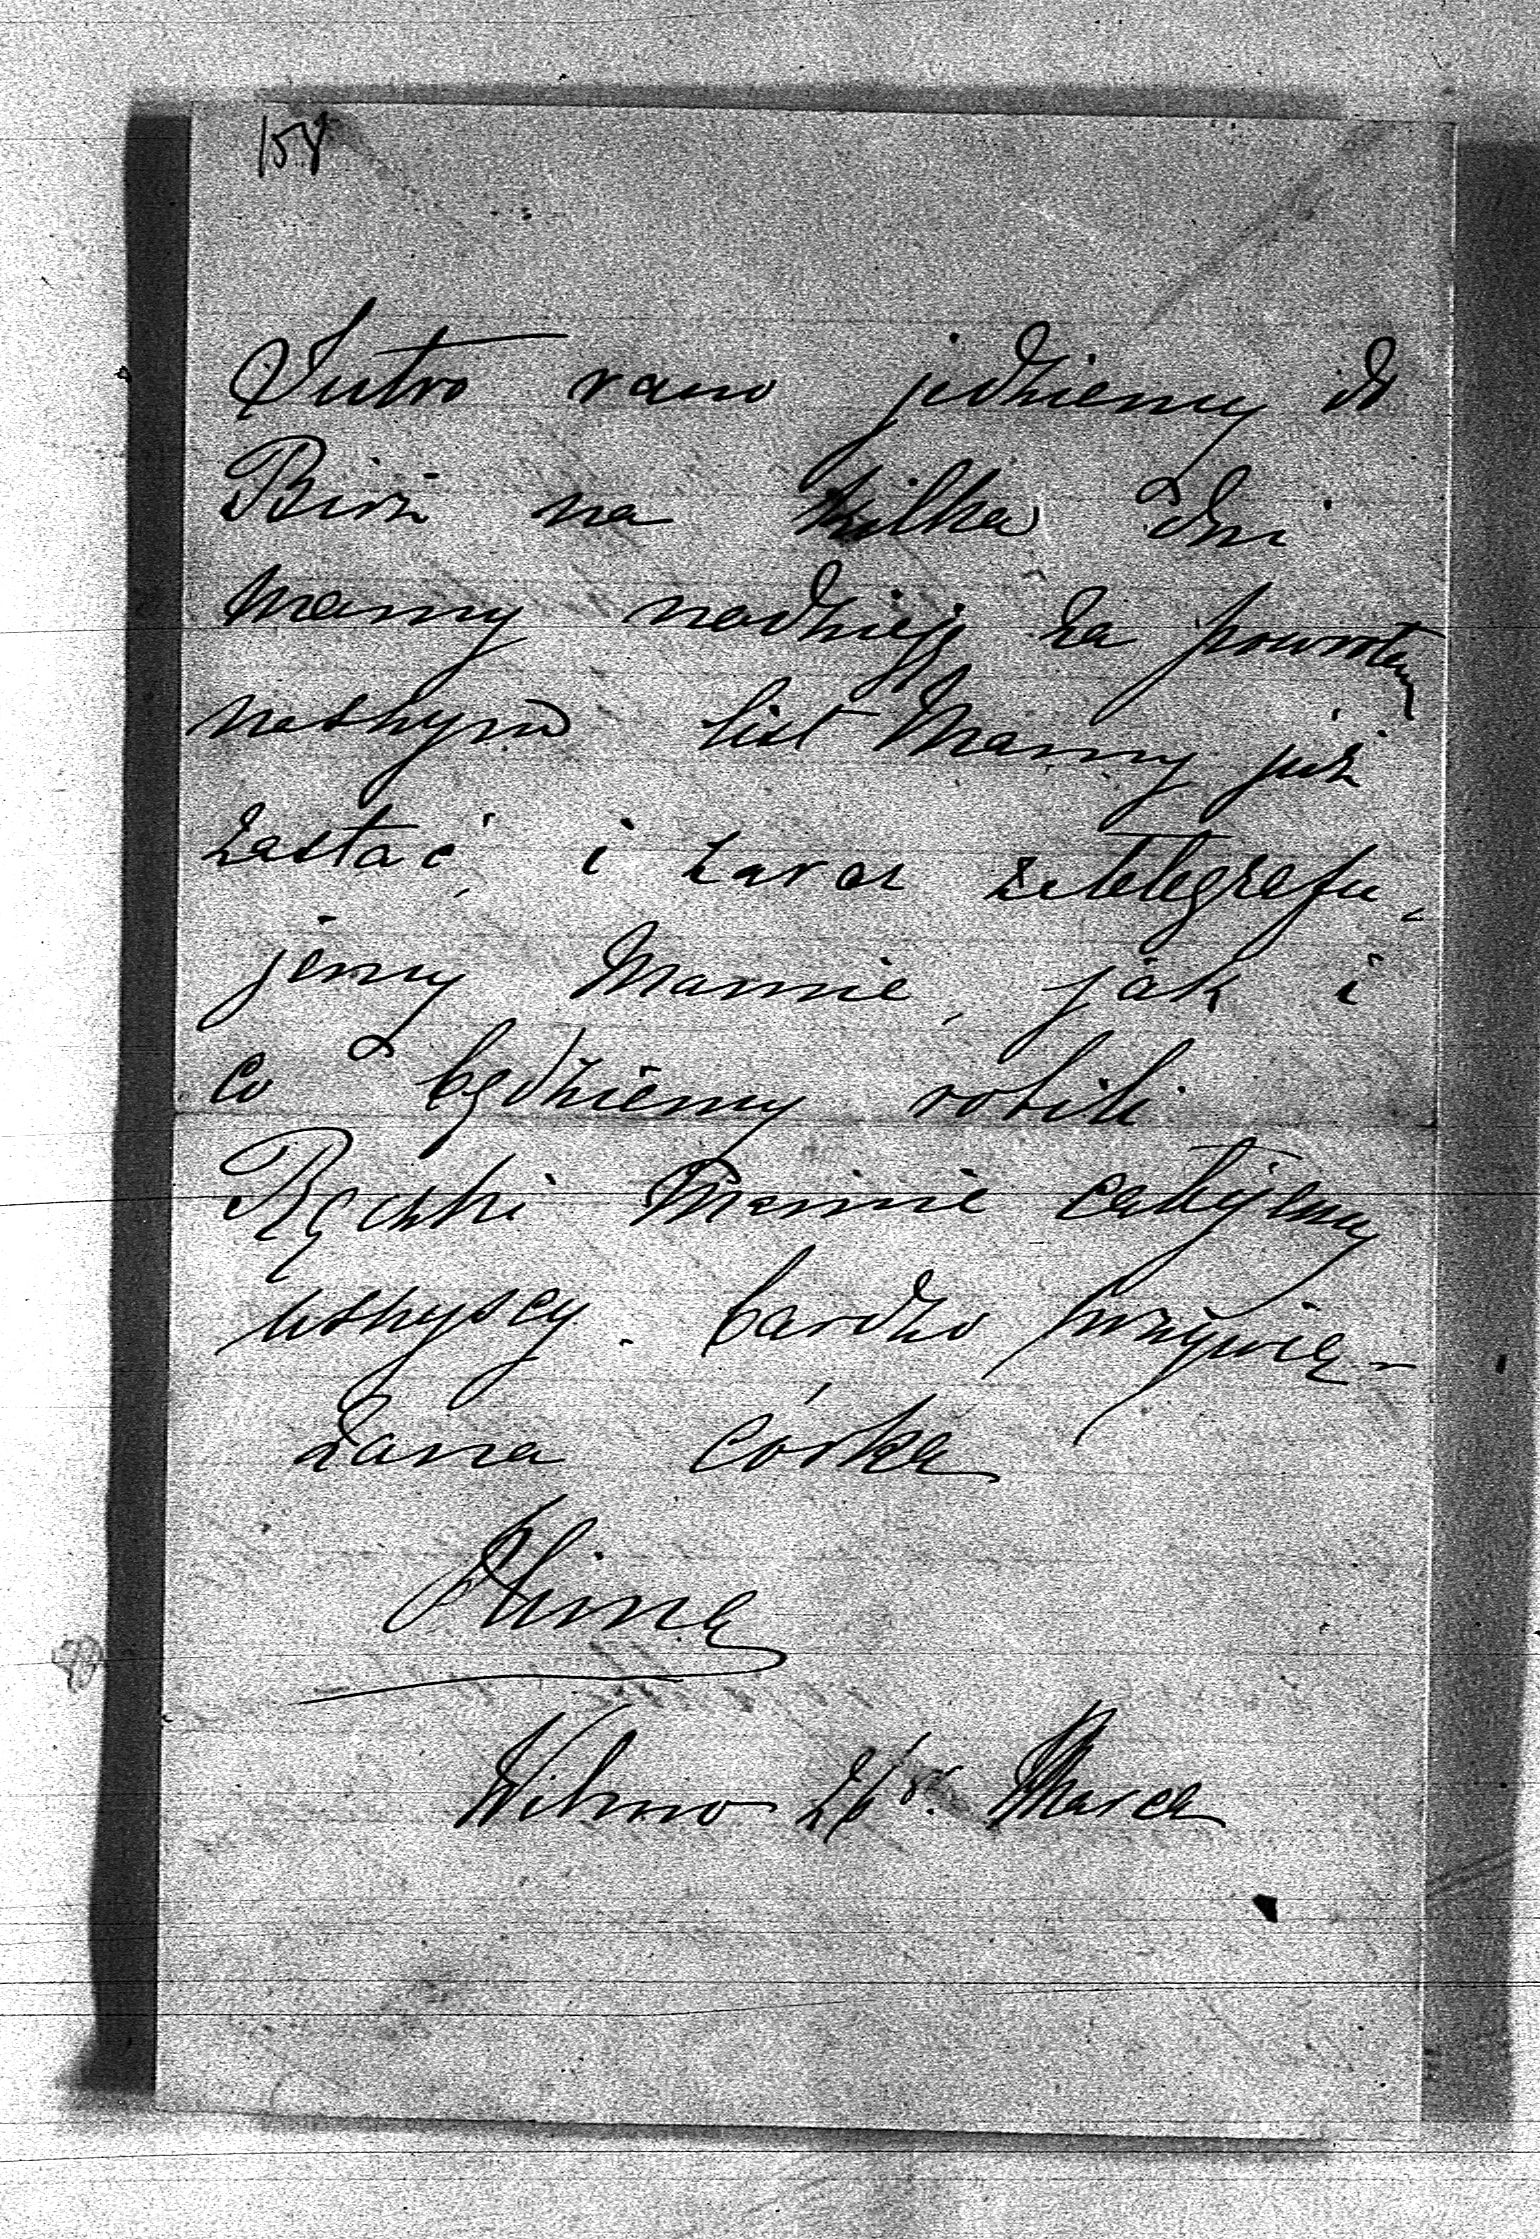 158
Jutro rano jedziemy do
Birż na kilka dni
mamy nadzieję za powrotem
naszym list Mamy już
zastać, i zaraz zatelegrafu-
jemy Mamie, jak i
co będziemy robili
Rączki Mamie całujemy
wszyscy. bardzo przywią-
zana córka
Klima
Wilno 26go. Marca